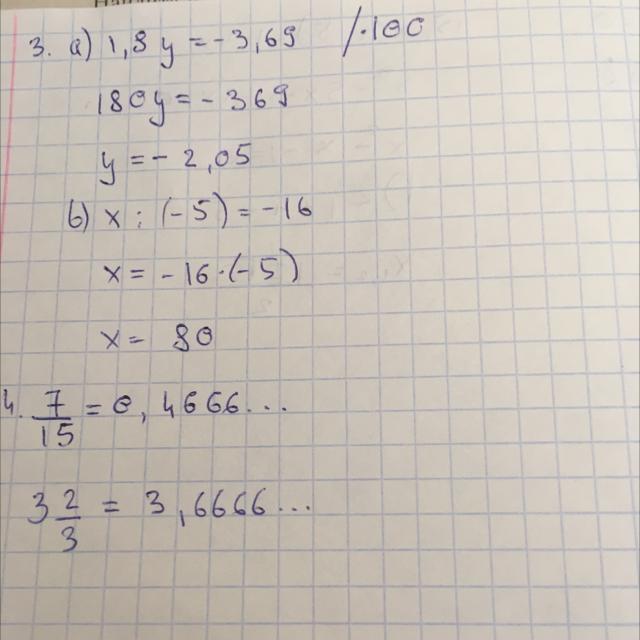 3. а) 1,8 y = - 3,69 /·100
180y = - 369
y = - 2,05
б) x : (-5) = -16
x = - 16·(-5)
x = 80
4. 7/15 = 0,4666...
3 2/3 = 3,6666...